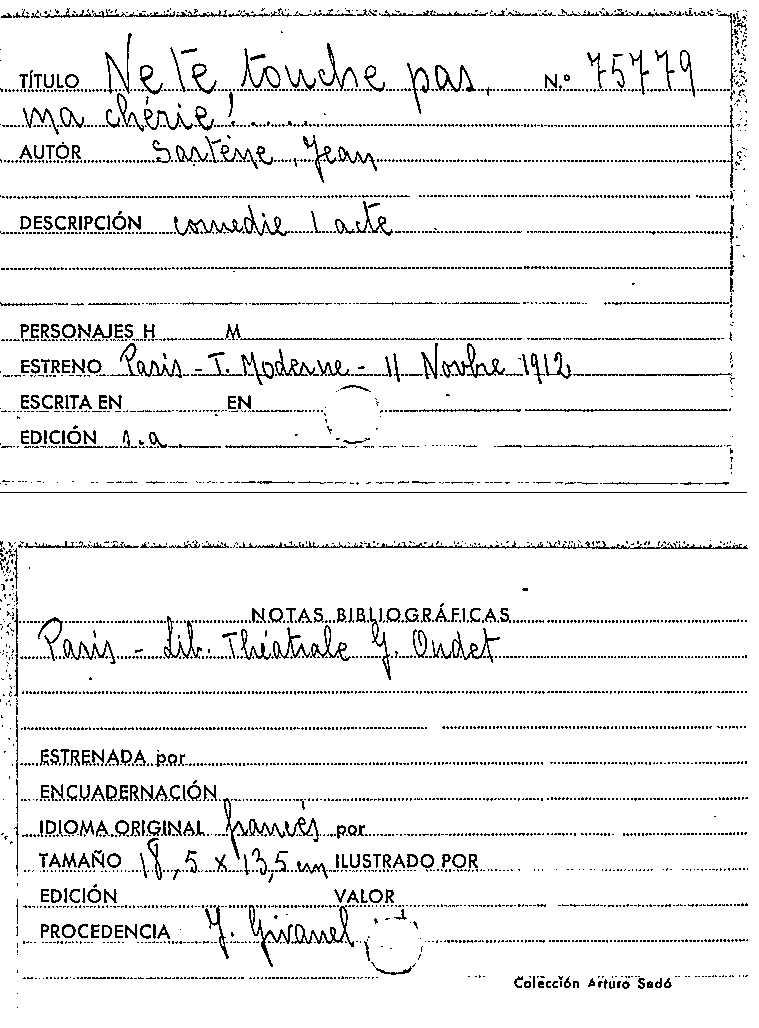 TÍTULO Ne te touche pas, N.º 75779
ma chérie!.....
AUTÓR Sartène, Jean
DESCRIPCIÓN comedie 1 acte
PERSONAJES H M
ESTRENO Paris - T. Moderne - 11 Novbre 1912
ESCRITA EN EN
EDICIÓN s.a.
NOTAS BIBLIOGRÁFICAS
Paris - Lib. Théatrale G. Ondet
ESTRENADA por
ENCUADERNACIÓN
IDIOMA ORIGINAL francés por
TAMAÑO 18,5 x 13,5 cm ILUSTRADO POR
EDICIÓN VALOR
PROCEDENCIA J. Givanel
Colección Arturo Sedó